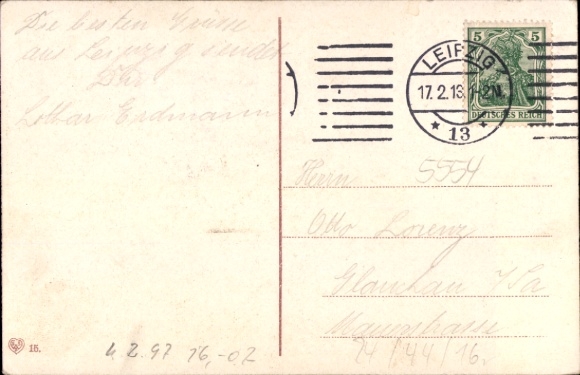 Die besten Grüsse
aus Leipzig sendet
Dir
Lothar Erdmann
5 5
DEUTSCHES REICH
LEIPZIG
17.2.13. 1-2N.
* 13 *
Herrn 5554
Otto Lorenz
Glauchau i/Sa
24/44/16.
15.
4.2.97 16,-02